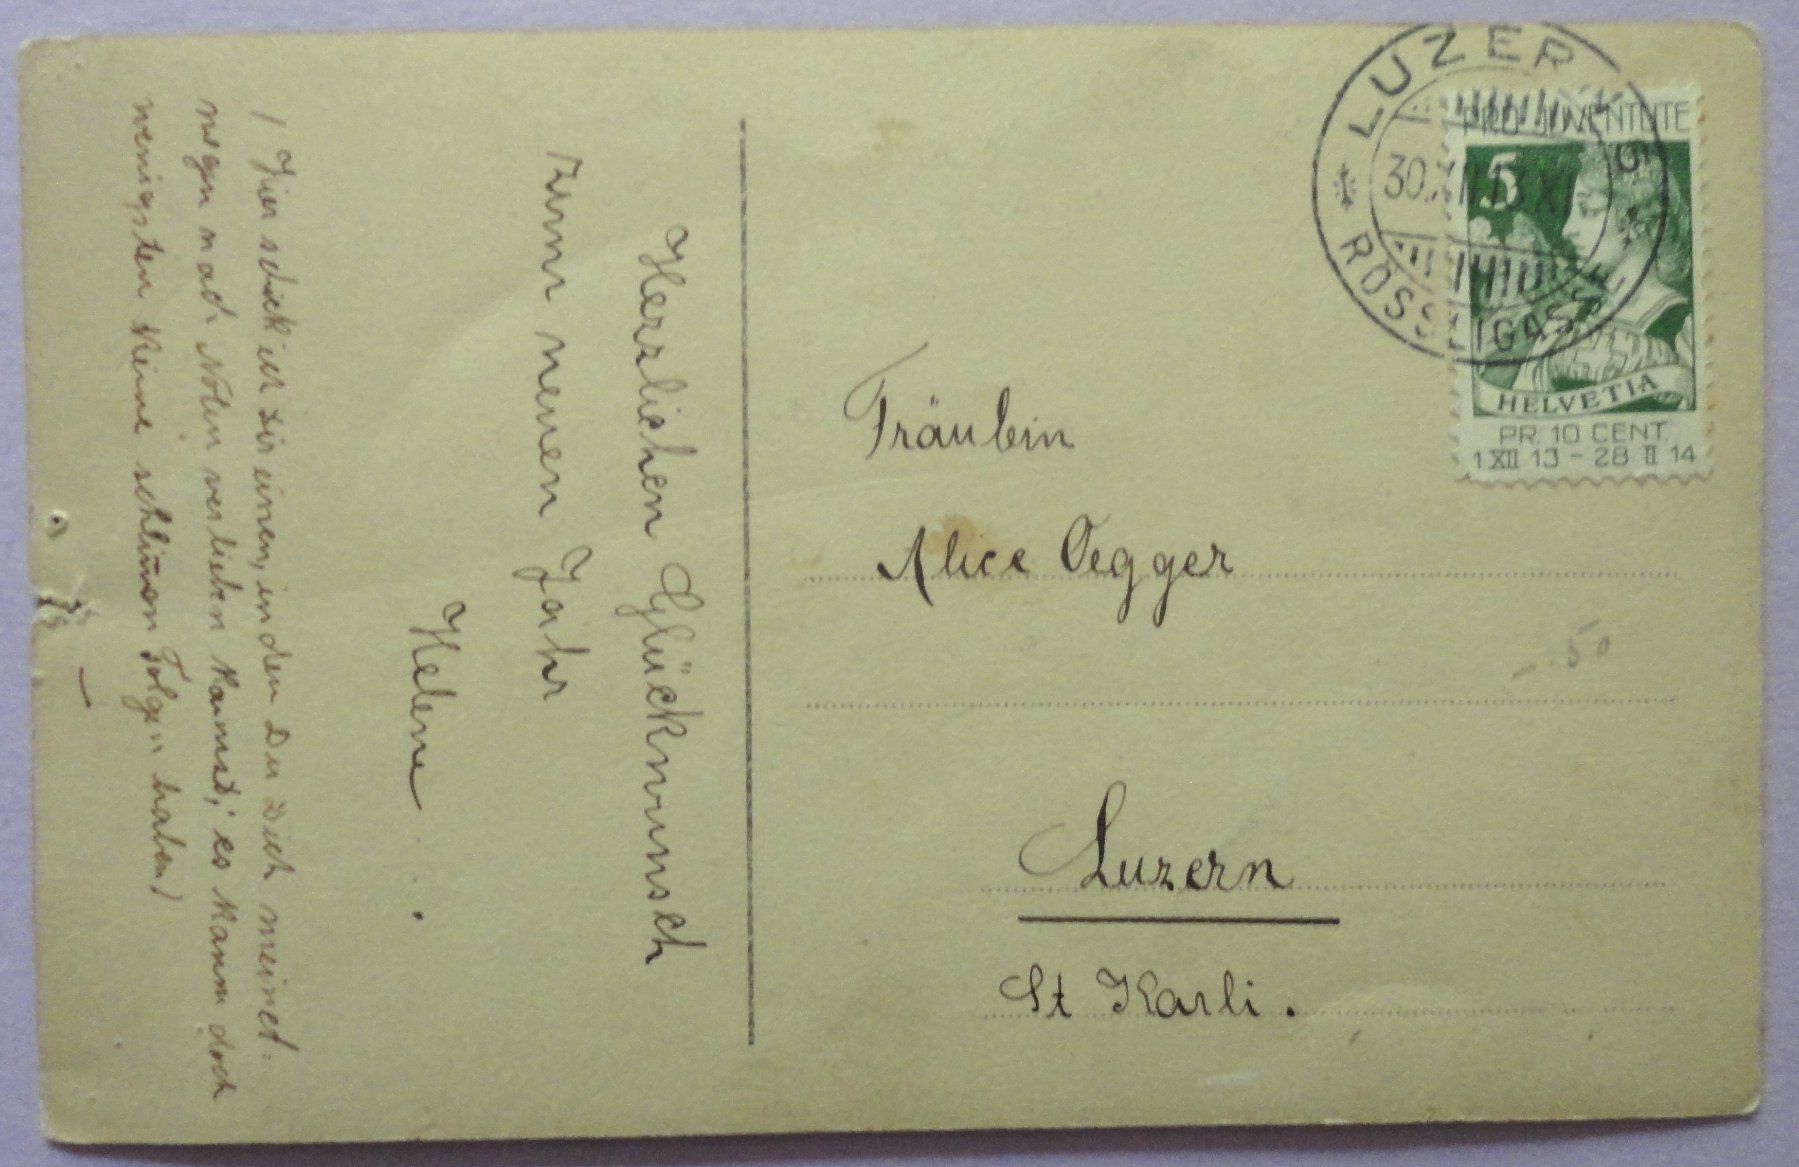 Herzlichen Glückwunsch
zum neuen Jahr
Helene
( Hier schick ich dir einen, in den Du Dich meinet-
wegen nach Noten verlieben kannst; es kann doch
wenigsten keine schlimen Folgen haben)
LUZERN
30.XII.13.XI
5
RÖSSLIGASSE
PRO JUVENTUTE
5
HELVETIA
PR. 10 CENT.
1 XII 13 - 28 II 14
Fräulein
Alice Oegger
-.50
Luzern
St Karli.